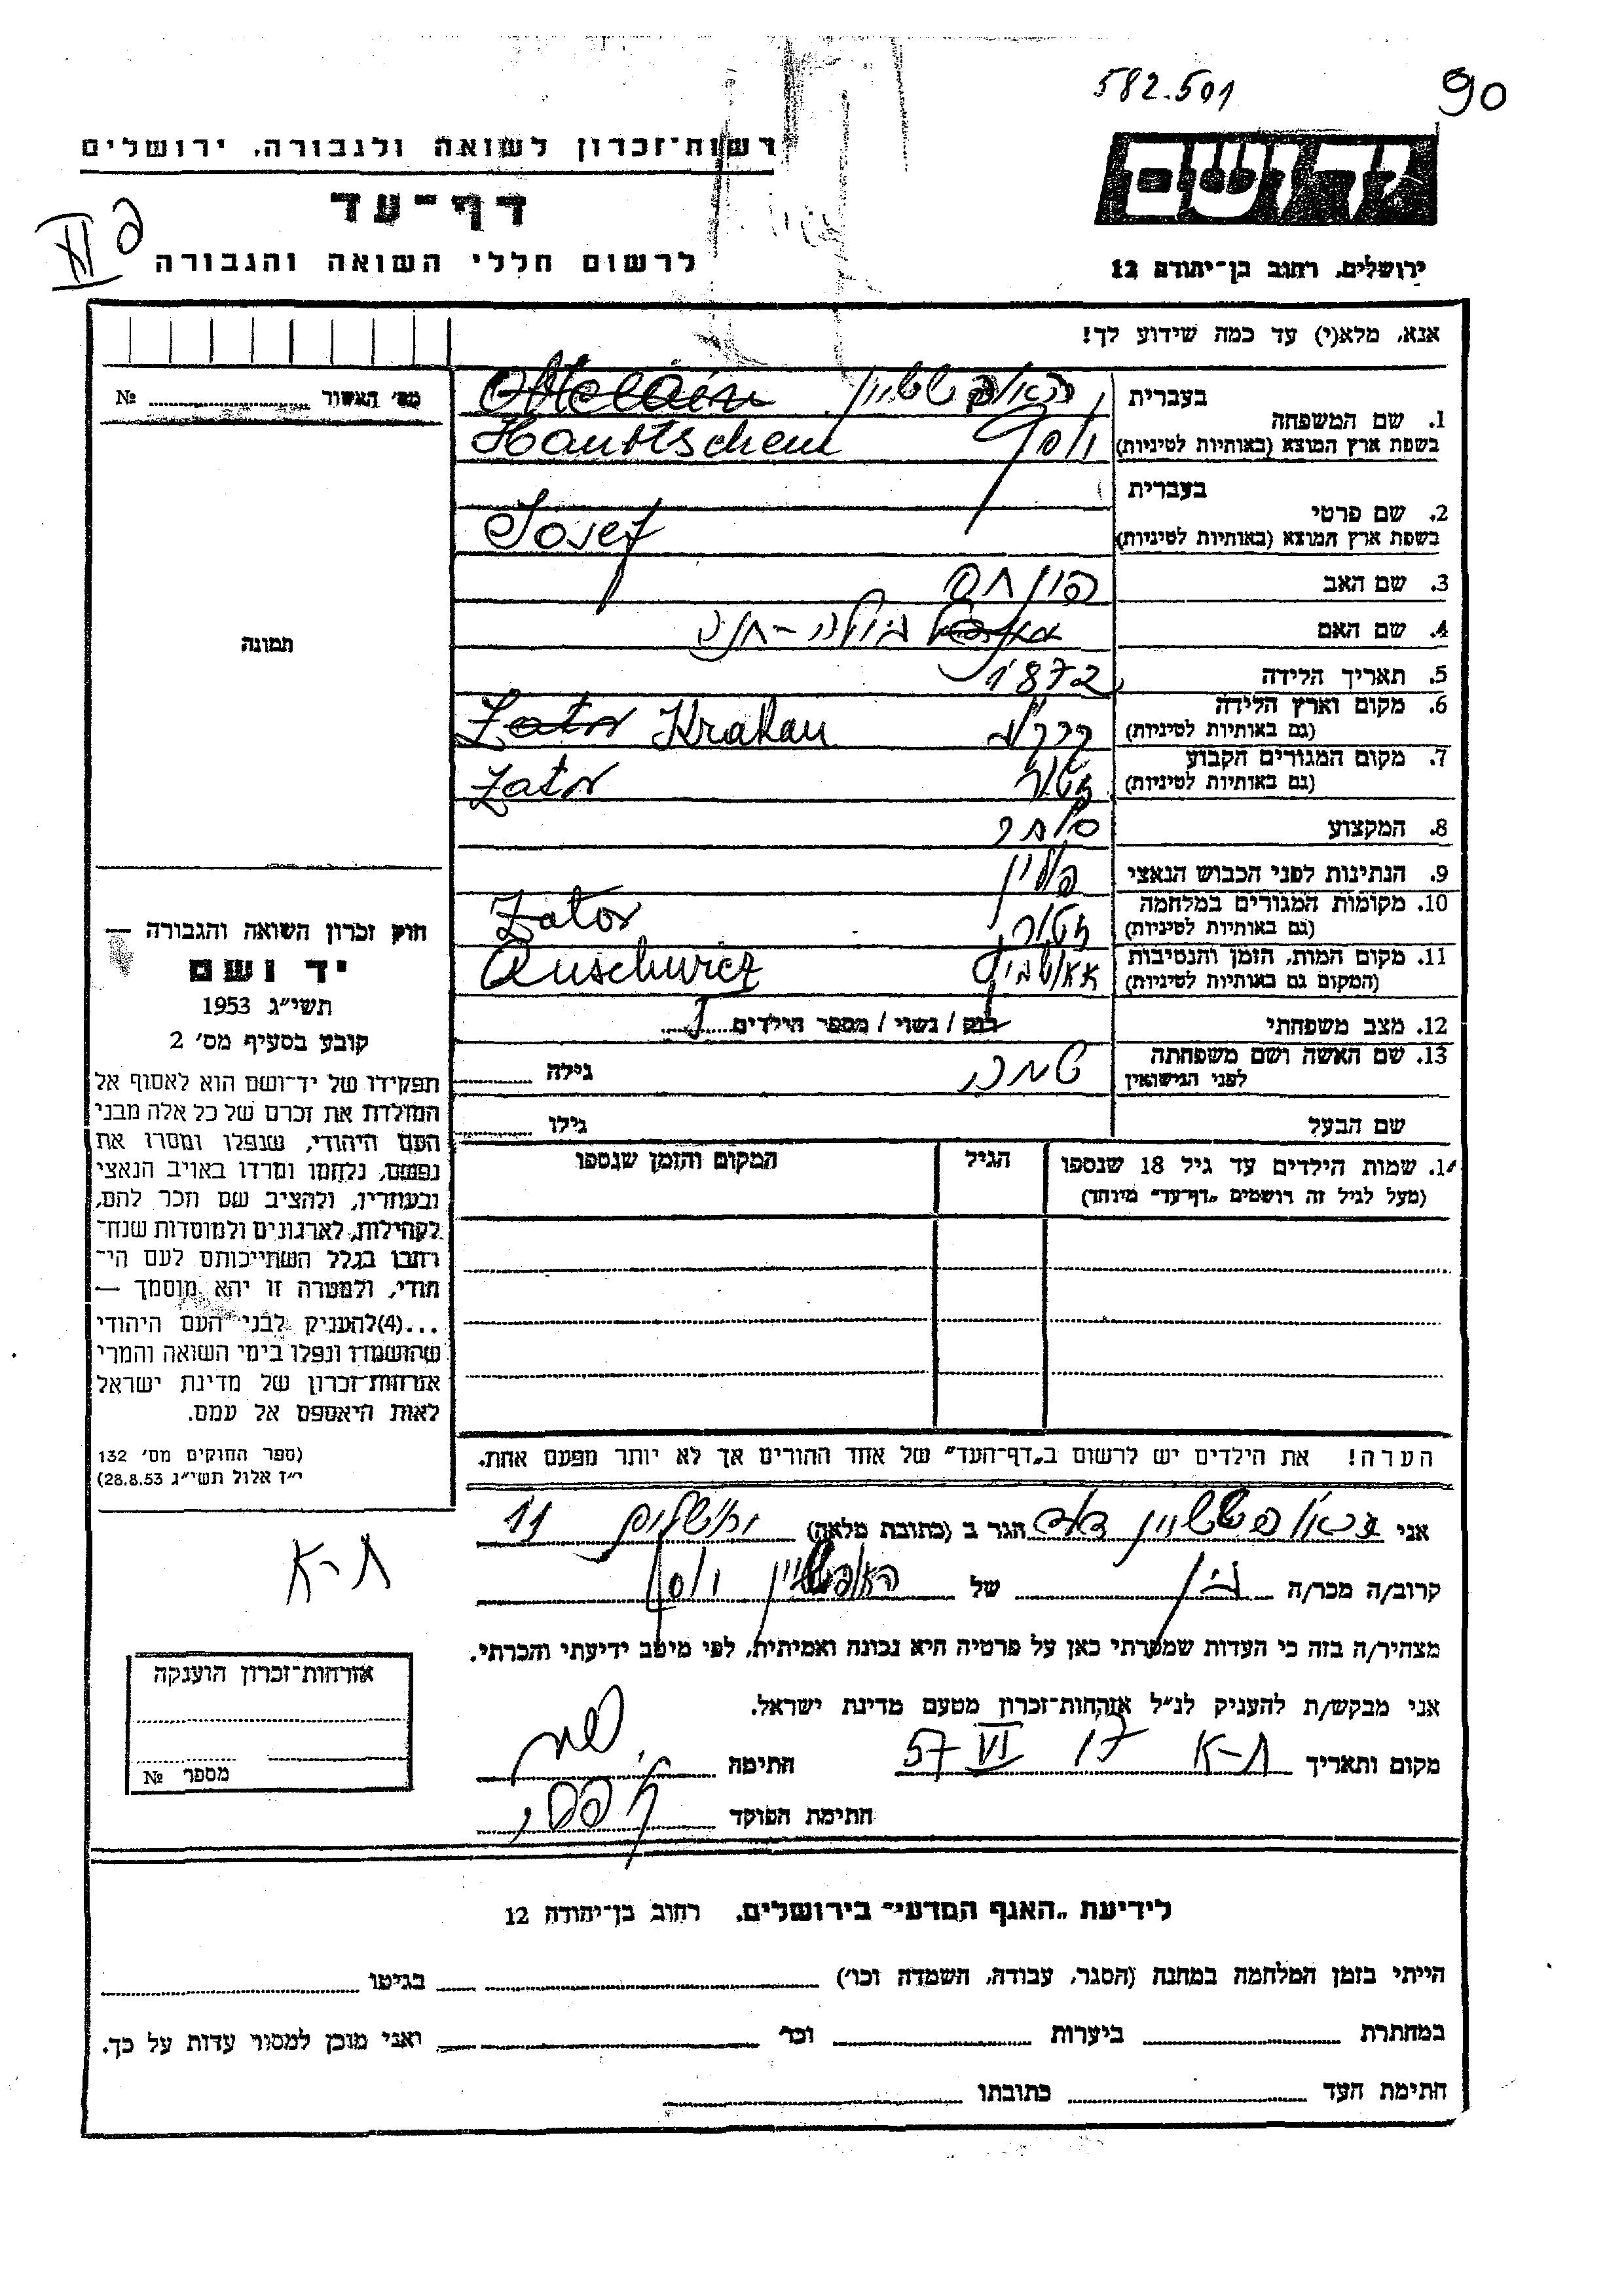 582.501
90
רשות־זכרון לשואה ולגבורה, ירושלים
יד ושם
דף־עד
לרשום חללי השואה והגבורה
ירושלים, רחוב בן־יהודה 12
אנא, מלא(י) עד כמה שידוע לך!
מס׳ האשור № 
בעברית האופטשטיין
1. שם המשפחה
בשפת ארץ המוצא (באותיות לטיניות) יוסף
בעברית
2. שם פרטי
בשפת ארץ המוצא (באותיות לטיניות) Josef
3. שם האב פינחס
4. שם האם
תמונה
5. תאריך הלידה 1872
6. מקום וארץ הלידה
(גם באותיות לטיניות) Zator Krakau
7. מקום המגורים הקבוע
(גם באותיות לטיניות) Zator
8. המקצוע סוחר
9. הנתינות לפני הכבוש הנאצי פולין
10. מקומות המגורים במלחמה
(גם באותיות לטיניות) Zator
11. מקום המות, הזמן והנסיבות
(המקום גם באותיות לטיניות) Auschwicz
12. מצב משפחתי רוק / נשוי / מספר הילדים
13. שם האשה ושם משפחתה
לפני הנישואין גילה
שם הבעל גילו
14. שמות הילדים עד גיל 18 שנספו הגיל המקום והזמן שנספו
(מעל לגיל זה רושמים „דף־עד״ מיוחד)
חוק זכרון השואה והגבורה —
יד ושם
תשי״ג 1953
קובע בסעיף מס׳ 2
תפקידו של יד־ושם הוא לאסוף אל
המולדת את זכרם של כל אלה מבני
העם היהודי, שנפלו ומסרו את
נפשם, נלחמו ומרדו באויב הנאצי
ובעוזריו, ולהציב שם וזכר להם,
לקהילות, לארגונים ולמוסדות שנח־
רבו בגלל השתייכותם לעם הי־
הודי, ולמטרה זו יהא מוסמך —
...(4) להעניק לבני העם היהודי
שהושמדו ונפלו בימי השואה והמרי
אזרחות־זכרון של מדינת ישראל
לאות היאספם אל עמם.
(ספר החוקים מס׳ 132
י״ז אלול תשי״ג 28.8.53)
הערה! את הילדים יש לרשום ב„דף־העד״ של אחד ההורים אך לא יותר מפעם אחת.
אני האופטשטיין דוד הגר ב (כתובת מלאה)
קרוב/ה מכר/ה בן של האופטשטיין יוסף
ת-א
מצהיר/ה בזה כי העדות שמסרתי כאן על פרטיה היא נכונה ואמיתית, לפי מיטב ידיעתי והכרתי.
אני מבקש/ת להעניק לנ״ל אזרחות־זכרון מטעם מדינת ישראל.
מקום ותאריך ת-א 17 VI 57 חתימה
חתימת הפוקד
אזרחות־זכרון הוענקה
מספר №
לידיעת „האגף המדעי״ בירושלים, רחוב בן־יהודה 12
הייתי בזמן המלחמה במחנה (הסגר, עבודה, השמדה וכו׳) בגיטו
במחתרת ביערות וכו׳ ואני מוכן למסור עדות על כך.
חתימת העד כתובתו